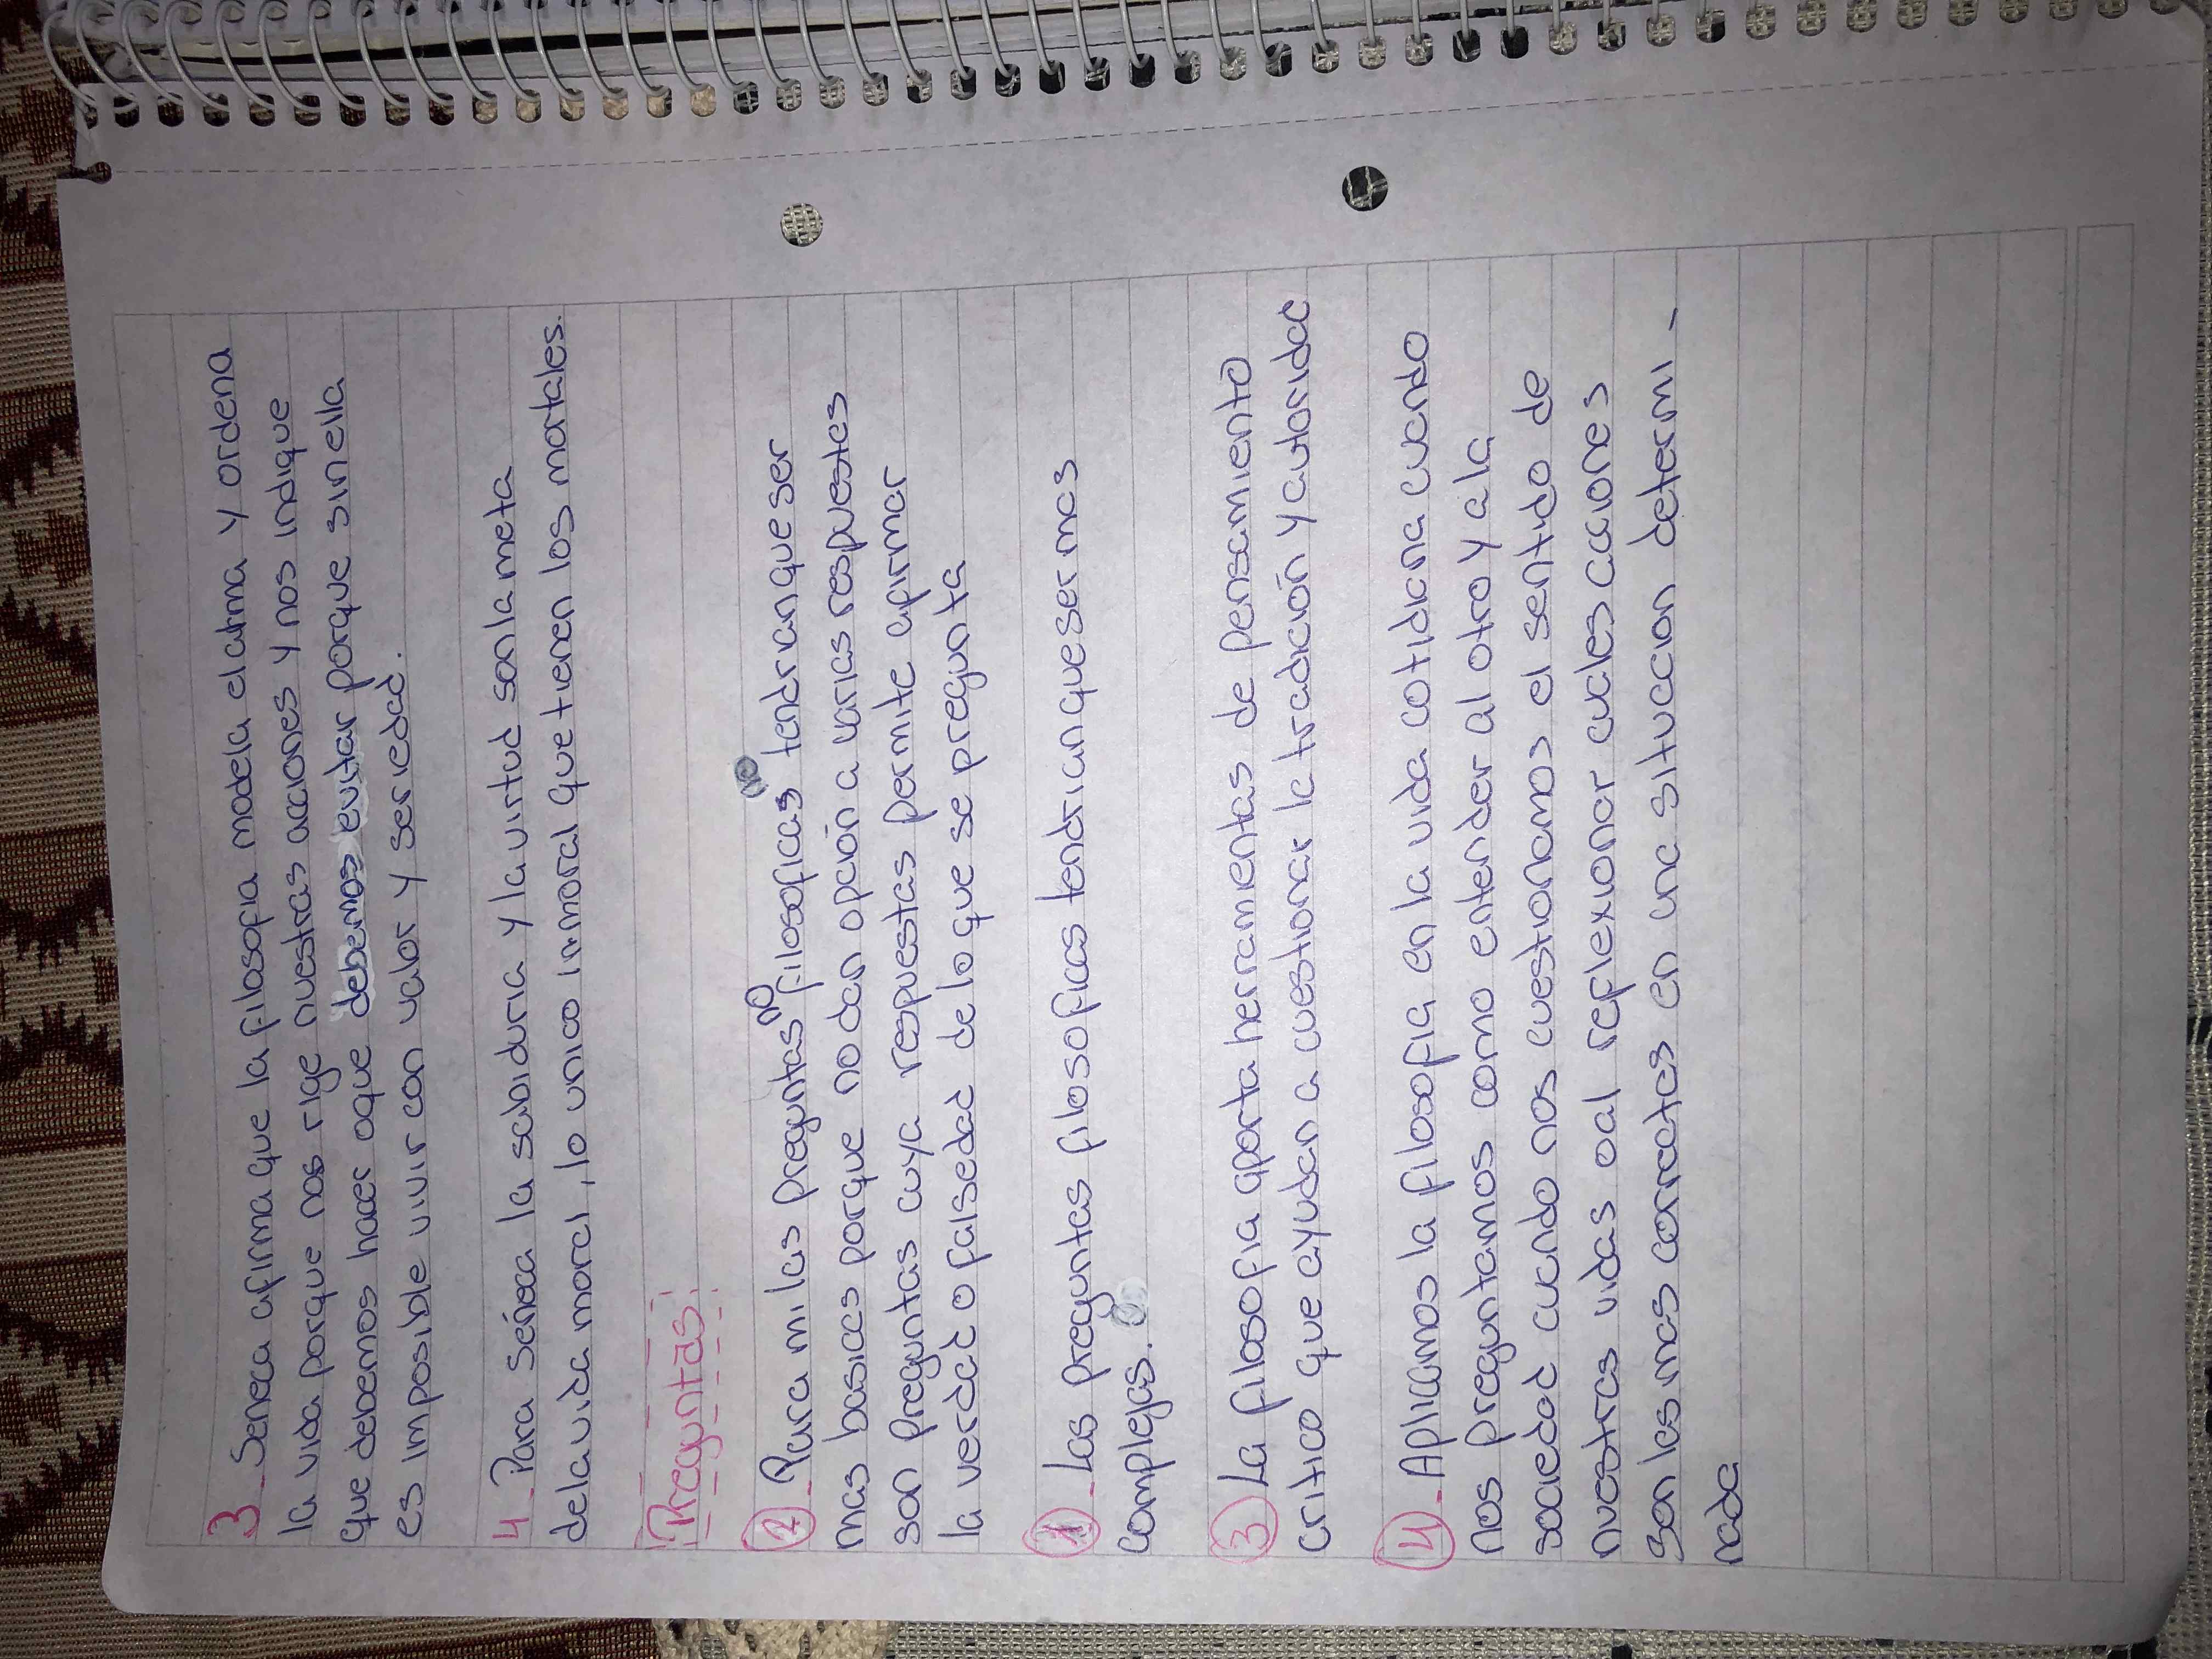 3_Seneca afirma que la filosofia modela el alma y ordena
la vida porque nos rige nuestras acciones y nos indique
que debemos hacer o que debemos evitar porque sin ella
es imposible vivir con valor y seriedad.
4_Para séneca la sabiduria y la virtud son la meta
de la vida moral, lo unico inmoral que tienen los mortales.
Preguntas:
2_Para mi las preguntas no filosoficas tendrian que ser
mas basicas porque no dan opción a varias respuestas
son preguntas cuya respuestas permite afirmar
la verdad o falsedad de lo que se pregunta
1_Las preguntas filosoficas tendrian que ser mas
complejas.
3 La filosofia aporta herramientas de pensamiento
critico que ayudan a cuestionar la tradición y autoridad
4_Aplicamos la filosofia en la vida cotidiana cuando
nos preguntamos como entender al otro y a la
sociedad cuando nos cuestionamos el sentido de
nuestras vidas o al reflexionar cuales acciones
son las mas correctas en una situacion determi-
nada